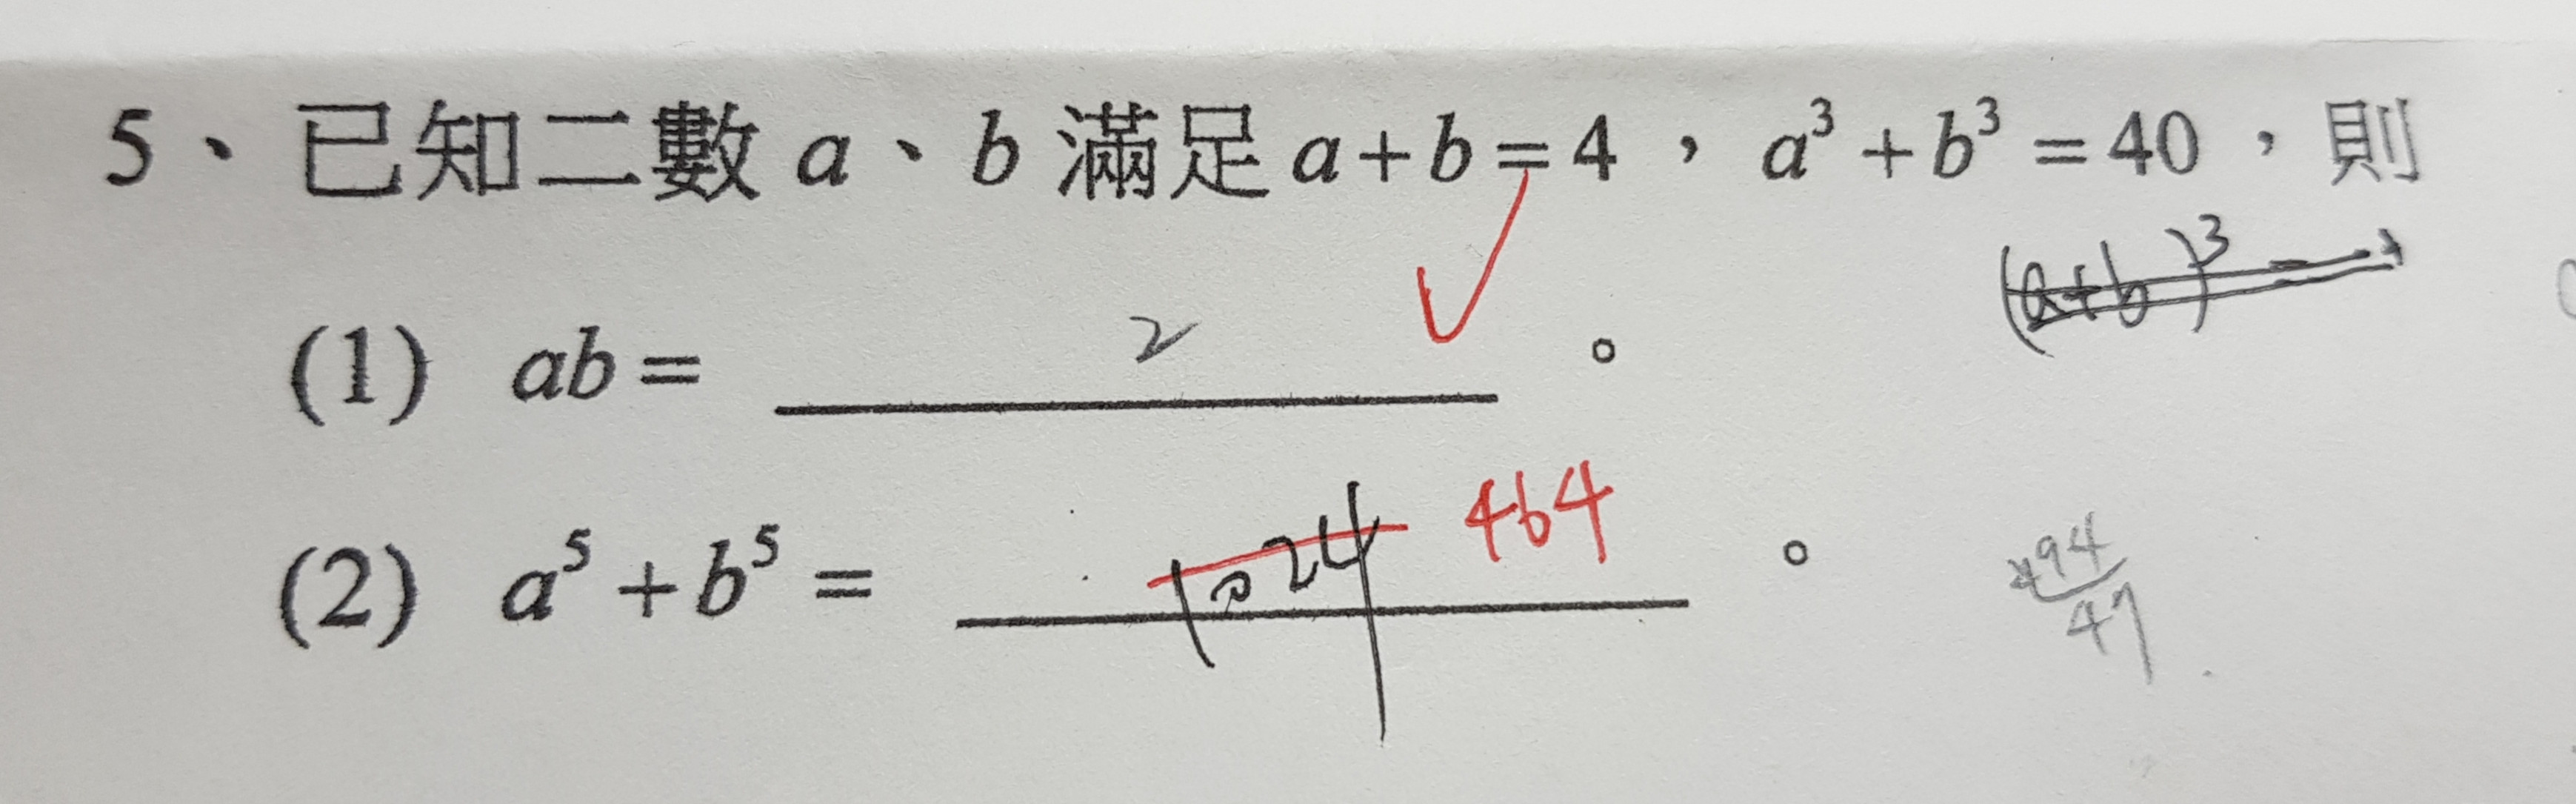 5、已知二數 a、b 滿足 a+b=4,a³+b³=40,則
(a+b)³
(1) ab= 2 。
(2) a⁵+b⁵= 1024 464 。
494
47